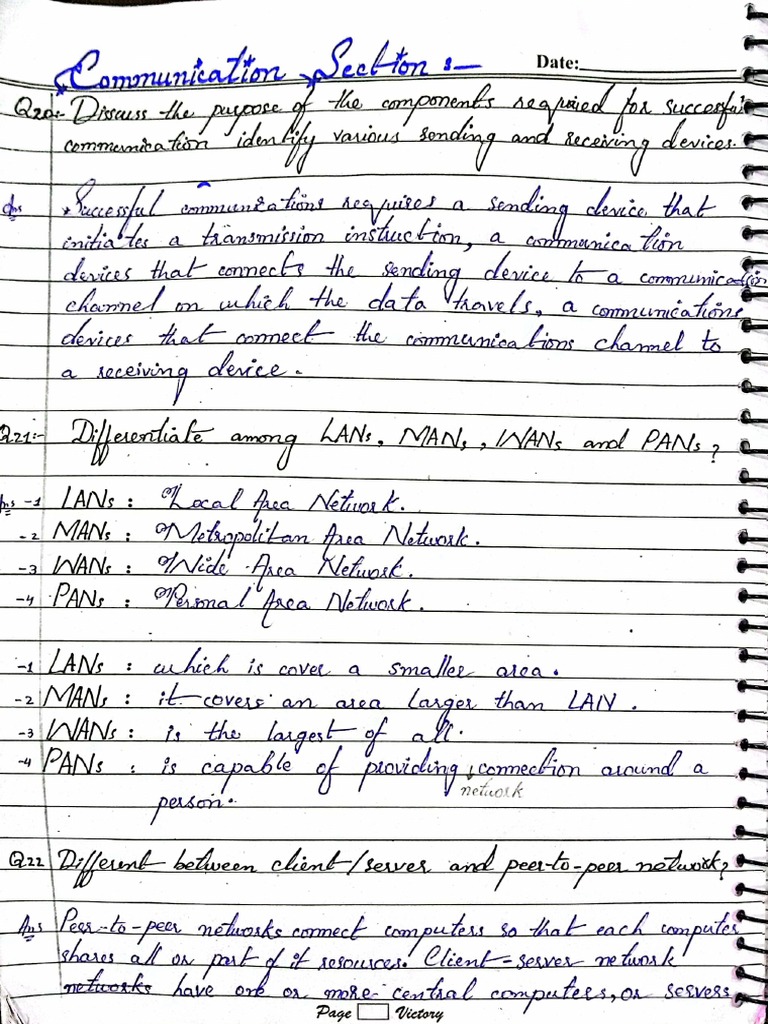 Communication Section :-
Date:
Q20:- Discuss the purpose of the components required for successful
communication identify various sending and receiving devices.
Ans Successful communications requires a sending device that
initiates a transmission instruction, a communication
devices that connects the sending device to a communication
channel on which the data travels, a communications
devices that connect the communications channel to
a receiving device.
Q21:- Differentiate among LANs, MANs, WANs and PANs?
Ans -1 LANs : Local Area Network.
-2 MANs : Metropolitan Area Network.
-3 WANs : Wide Area Network.
-4 PANs : Personal Area Network.
-1 LANs : which is cover a smaller area.
-2 MANs : it covers an area larger than LAN.
-3 WANs : is the largest of all.
-4 PANs : is capable of providing network connection around a
person.
Q22 Different between client/server and peer-to-peer network?
Ans Peer-to-peer networks connect computers so that each computer
shares all or part of it resources. Client-server network
networks have one or more central computers, or servers
Page Victory